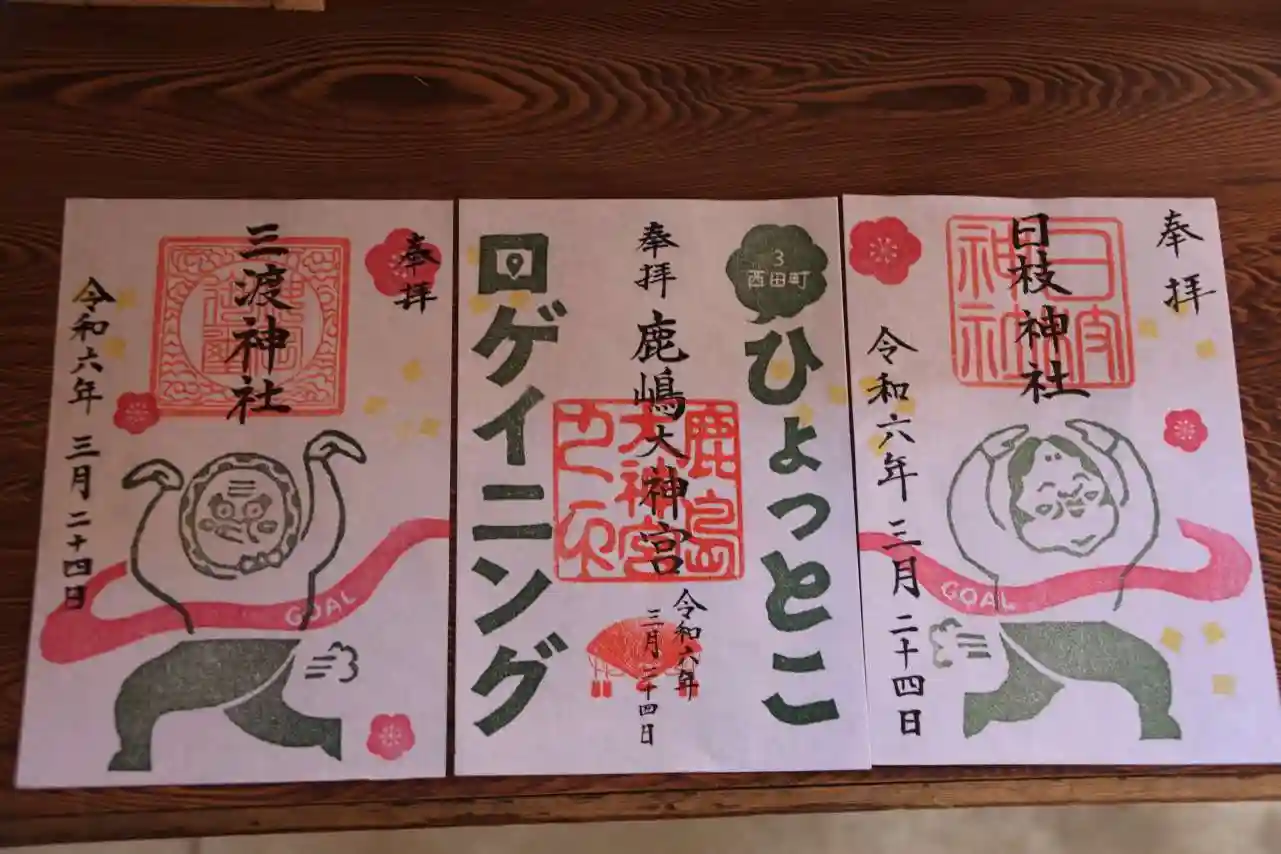 奉拝
三渡神社
令和六年 三月二十四日
GOAL
3
西田町
ひょっとこ
奉拝 鹿嶋大神宮
鹿島
大神宮
之印
令和六年
三月二十四日
ロゲイニング
奉拝
日枝神社
日枝
神社
令和六年 三月二十四日
GOAL